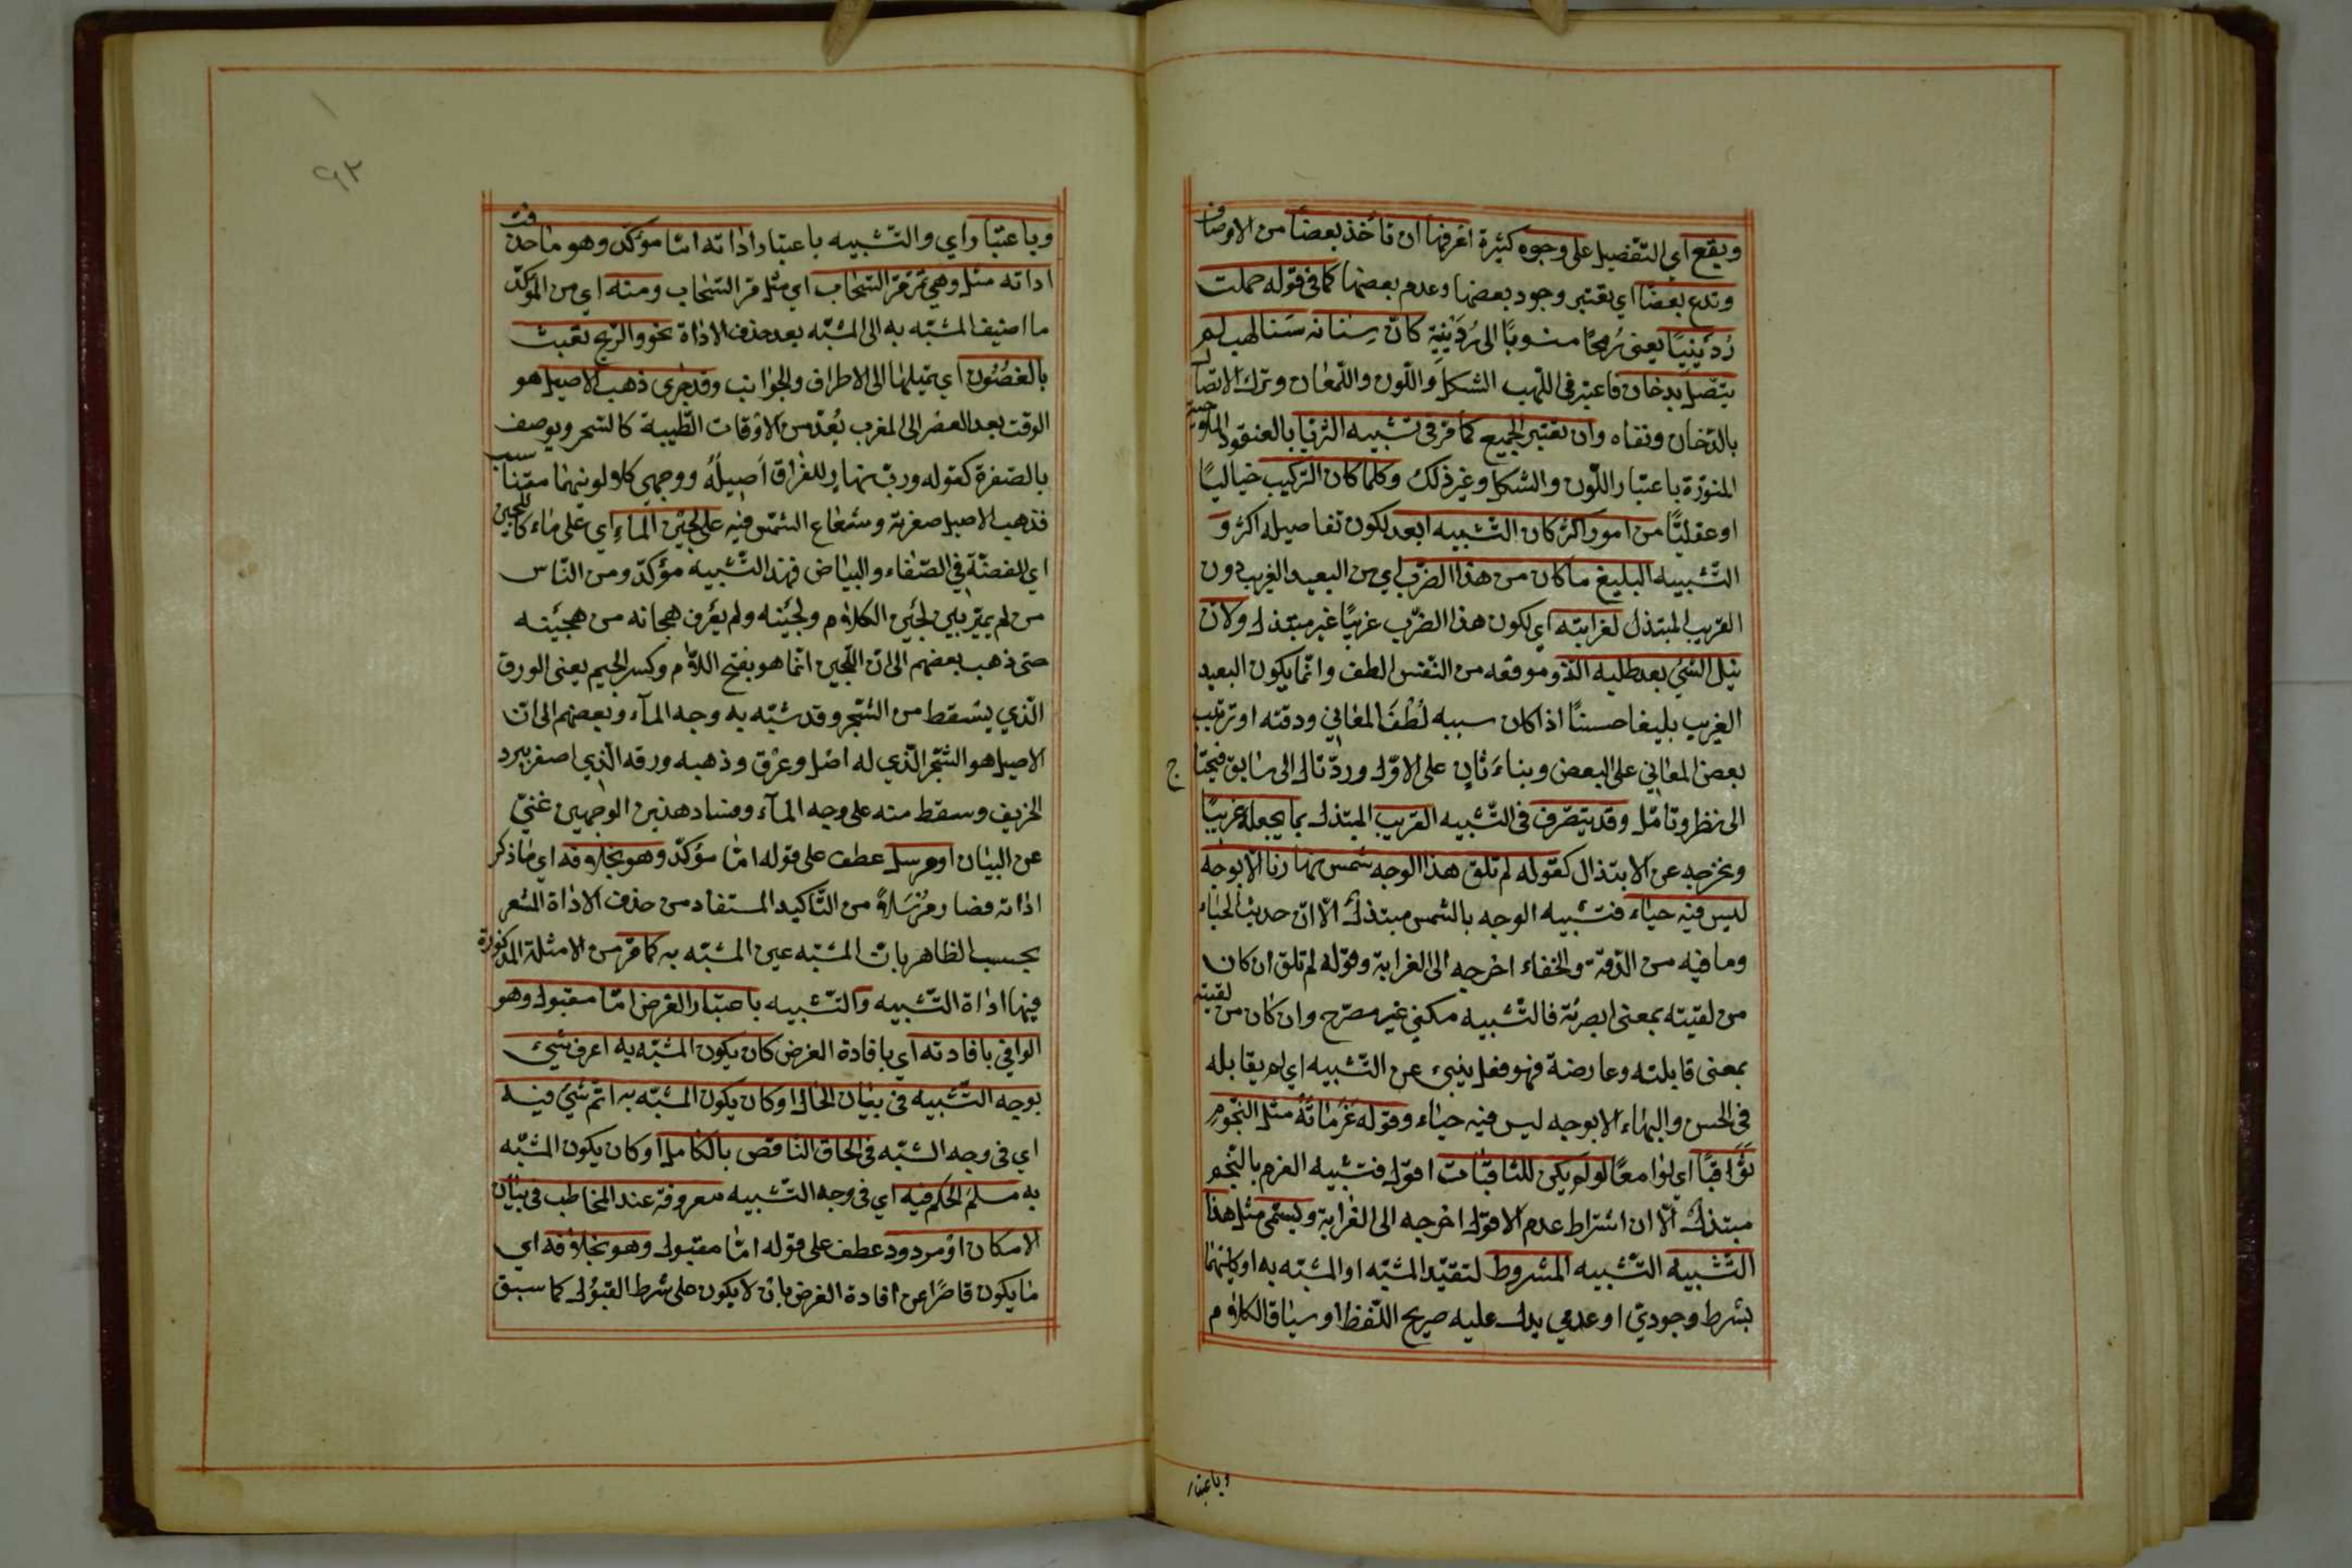 ويقع اي التفصيل على وجوه كثيرة اعرفها ان تأخذ بعضا من الاوصاف
وتدع بعضا اي يعتبر وجود بعضها وعدم بعضها كما في قوله حملت
رُدَينِيًا يعنى رُمحًا منسوبًا الى رُدَينِيَةٍ كانّ سِنانه سَنا لهب لم
يتصل بدخان فاعتبر فى اللهب الشكل واللّون واللّمعان وترك الاتصال
بالدّخان ونفاه وان يعتبر الجميع كما مرّ فى تشبيه الثريا بالعنقود الملاحية
المنوّرة باعتبار اللّون والشكل وغير ذلك وكلما كان التركيب خياليًا
او عقليًّا من امور اكثر كان التّشبيه ابعد لكون تفاصيله اكثر و
التّشبيه البليغ ما كان من هذا الضّرب اي من البعيد الغريب دون
القريب المبتذل لغرابته اي لكون هذا الضّرب غريبًا غير مبتذل ولان
نيل الشئ بعد طلبه الذ وموقعه من النّفس الطف وانّما يكون البعيد
الغريب بليغا حسنًا اذا كان سببه لُطْفَ المعاني ودقته او ترتيب
بعض المعاني على البعض وبناءَ ثانٍ على الاوّل وردّ تال الى سابق فيحتاج
الى نظر وتأمّل وقد يتصّرف فى التّشبيه القريب المبتذل بما يجعله غريبًا
ويخرجه عن الابتذال كقوله لم تلق هذا الوجه شمس نهارنا الّا بوجه
ليس فيه حياء فتشبيه الوجه بالشمس مبتذل الّا انّ حديث الحياء
وما فيه من الدّقة والخفاء اخرجه الى الغرابة وقوله لم تلق ان كان
من لقيته بمعنى ابصرته فالتّشبيه مكني غير مصرّح وان كان من لقيته
بمعنى قابلته وعارضة فهو فعل ينبئ عن التّشبيه اي لم يقابله
فى الحسن والبهاء الا بوجه ليس فيه حياء وقوله عَزَماتُهُ مثل النّجومِ
ثَوَاقبًا اي لوامعًا لو لم يكن للثاقبات افول فتشبيه العزم بالنّجم
مبتذل الّا ان اشتراط عدم الافول اخرجه الى الغرابة ويسمّى مثل هذا
التّشبيه التّشبيه المشروط لتقيّد المشبّه او المشبّه به او كليهما
بشرط وجوديّ او عدمي يدل عليه صريح اللّفظ او سياق الكلام
وباعتبار
٩٢
وباعتبار اي والتّشبيه باعتبار اداته امّا مؤكد وهو ما حذفت
اداته مثل وهي تمرّ مرّ السّحاب اي مثل مرّ السّحاب ومنه اي من المؤكّد
ما اضيف المشبّه به الى المشبّه بعد حذف الاداة نحو والرّيح تعبث
بالغصُون اي تميلها الى الاطراف والجوانب وقد جرى ذهب الاصيل هو
الوقت بعد العصر الى المغرب يُعدّ من الاوقات الطّيبة كالسّحر ويوصف
بالصّفرة كقوله وربّ نهار للفراق اَصيلُهُ ووجهي كلا لونيهما متناسب
فذهب الاصيل صفرته وشعاع الشّمس فيه على لجين الماءِ اي على ماء كاللجين
اي الفضّة في الصّفاء والبياض فهذا التّشبيه مؤكدّ ومن النّاس
من لم يميّز بين لُجَين الكلام ولَجينه ولم يعرف هجانه من هجينه
حتى ذهب بعضهم الى انّ اللّجين انّما هو بفتح اللام وكسر الجيم يعني الورق
الّذي يسقط من الشّجر وقد شبّه به وجه المآء وبعضهم الى انّ
الاصيل هو الشّجر الّذي له اصل وعرق وذهبه ورقه الّذي اصفر ببرد
الخريف وسقط منه على وجه المآء وفساد هذين الوجهين غنيّ
عن البيان او مرسل عطف على قوله امّا مؤكّد وهو بخلافه اي ما ذكر
اداته فصار مُرْسَلاً من التّأكيد المستفاد من حذف الاداة المشعر
بحسب الظاهر بانّ المشبّه عين المشبّه به كما مرّ من الامثلة المذكورة
فيها اداة التّشبيه والتّشبيه باعتبار الغرض امّا مقبول وهو
الوافي بافادته اي بافادة الغرض كان يكون المشبّه به اعرف شيء
بوجه التّشبيه في بيان الحال او كان يكون المشبّه به اتم شئ فيه
اي في وجه الشبّه في الحاق النّاقص بالكامل او كان يكون المشبّه
به مسلّم الحكم فيه اي في وجه التّشبيه معروفة عند المخاطب في بيان
الامكان او مردود عطف على قوله امّا مقبول وهو بخلافه اي
ما يكون قاصرًا عن افادة الغرض بان لا يكون على شرط القبول كما سبق